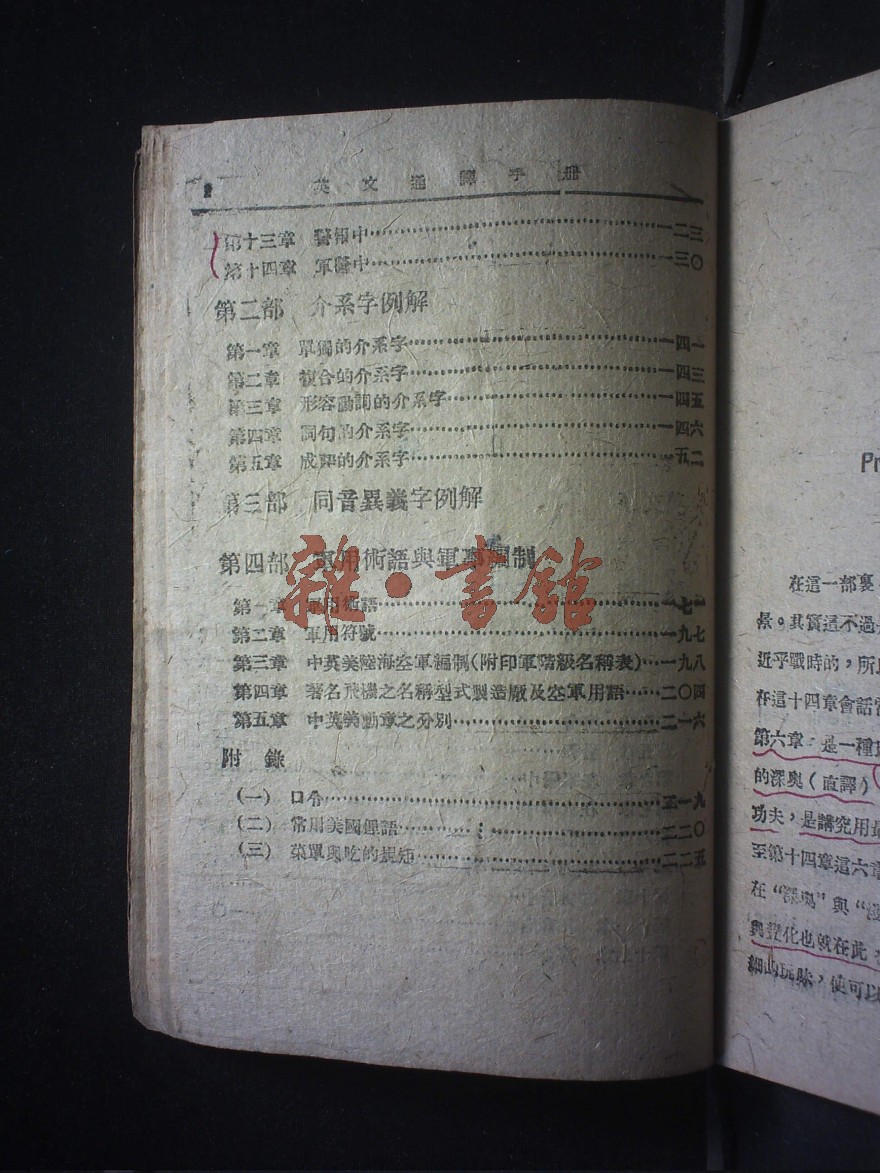 2 英文通譯手册
第十三章 警報中……一二三
第十四章 軍醫中……一三〇
第二部 介系字例解
第一章 單獨的介系字……一四一
第二章 複合的介系字……一四三
第三章 形容動詞的介系字……一四五
第四章 詞句的介系字……一四六
第五章 成語的介系字……一五二
第三部 同音異義字例解
第四部 軍用術語與軍事編制
第一章 軍用術語……一七一
第二章 軍用符號……一九七
第三章 中英美陸海空軍編制(附印軍階級名稱表)……一九八
第四章 著名飛機之名稱型式製造廠及空軍用語……二〇四
第五章 中英美勳章之分別……二一六
附錄
(一) 口令……二一九
(二) 常用美國俚語……二二〇
(三) 菜單與吃的規矩……二二五
雜·書館
Pr
在這一部裏
景。其實這不過
近乎戰時的，所以
在這十四章會話
第六章 是一種
的深奧(直譯)
功夫，是講究用
至第十四章這六章
在“深奧”與“淺
與變化也就在此
細的玩味，便可以